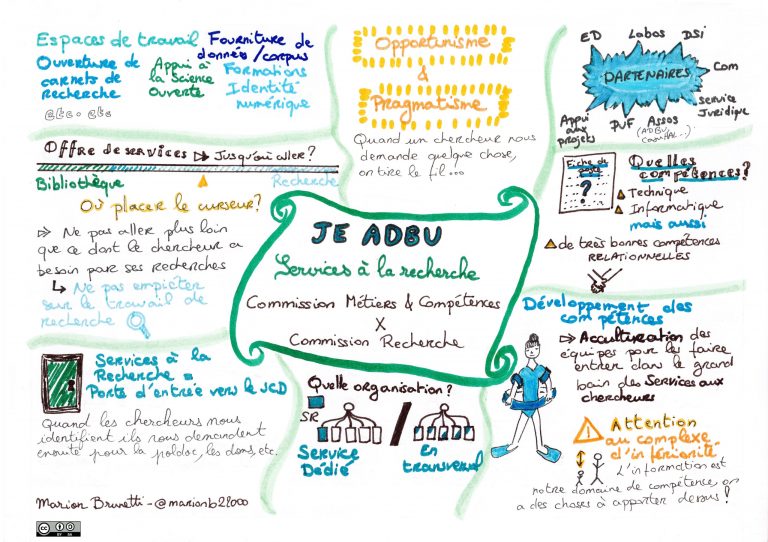 Espaces de travail
Ouverture de
carnets de
recherche
etc. etc
Appui à
la Science
ouverte
Fourniture de
données/corpus
Formations
Identité
numérique
Opportunisme
&
Pragmatisme
Quand un chercheur nous
demande quelque chose,
on tire le fil...
ED Labos DSI
PARTENAIRES
Com
Service
Juridique
Appui
aux
projets
PUF
Assos
(ADBU
Offre de services ⇒ Jusqu'où aller?
Bibliothèque
Recherche
Où placer le curseur?
⇒ Ne pas aller plus loin
que ce dont le chercheur a
besoin pour ses recherches
↳ Ne pas empiéter
sur le travail de
recherche
Fiche de
poste
?
Quelles
compétences?
Technique
Informatique
mais aussi
de très bonnes compétences
RELATIONNELLES
JE ADBU
Services à la recherche
Commission Métiers & Compétences
X
Commission Recherche
Services à la
Recherche =
Porte d'entrée vers le SCD
Quand les chercheurs nous
identifient ils nous demandent
ensuite pour la poldoc, les dons, etc.
Quelle organisation?
SR
/
Service
Dédié
En
transversal
Développement des
compétences
⇒ Acculturation des
équipes pour les faire
entrer dans le grand
bain des Services aux
chercheurs
! Attention
au complexe
d'infériorité
L'information est
notre domaine de compétence, on
a des choses à apporter dessus!
Marion Brunetti - @marionb22000
cc
BY SA